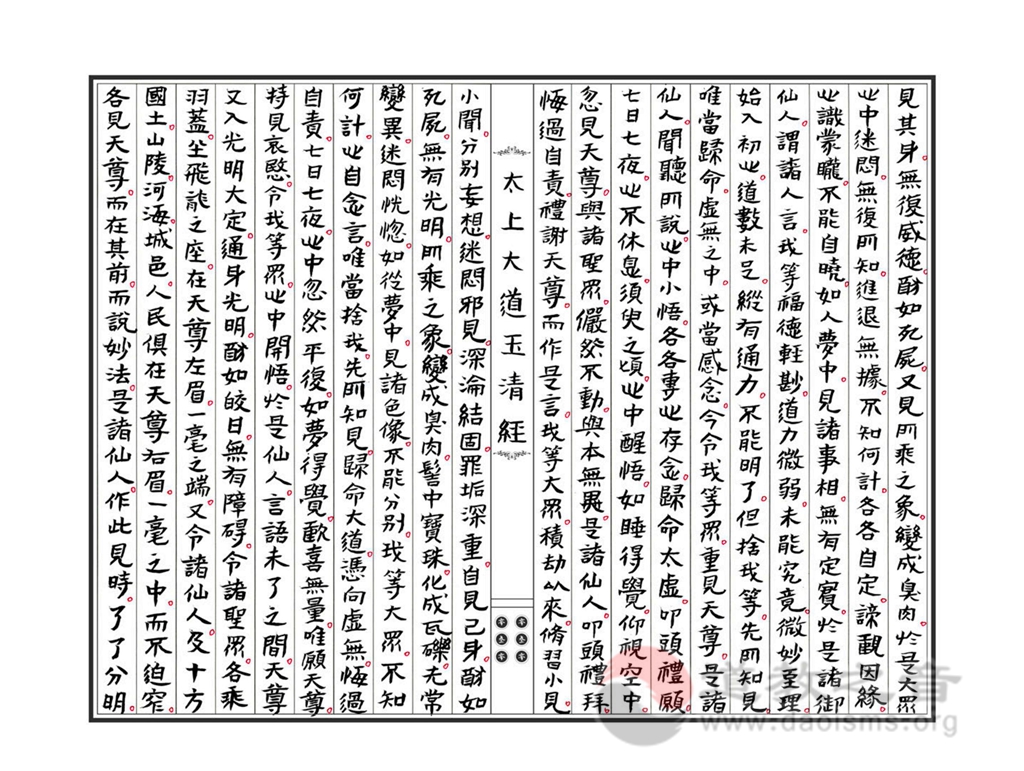 見其身無復威德。猷如死屍。又見所乘之象。變成臭肉。於是大眾
心中迷悶。無復所知。進退無據。不知何計。各各自定。諦觀因緣。
心識蒙矓。不能自曉。如人夢中。見諸事相。無有定實。於是諸御
仙人。謂諸人言。我等福德輕尠。道力微弱。未能究竟。微妙至理。
始入初心。道數未足。縱有通力。不能明了。但捨我等先所知見。
唯當歸命。虛無之中。或當感念。今令我等眾重見天尊。是諸
仙人。聞聽所說。心中小悟。各各專心存念。歸命太虛。叩頭禮願。
七日七夜。心不休息。須臾之頃。心中醒悟。如睡得覺。仰視空中。
忽見天尊。與諸聖眾。儼然不動。與本無異。是諸仙人。叩頭禮拜。
悔過自責。禮謝天尊。而作是言。我等大眾。積劫以來。脩習小見。
太上大道玉清經
小聞。分別妄想。迷悶邪見。深淪結固。罪垢深重。自見己身。猷如
死屍。無有光明。所乘之象。變成臭肉。髻中寶珠。化成瓦礫。无常
變異。迷悶恍惚。如從夢中。見諸色像。不能分別。我等大眾。不知
何計。心自念言。唯當捨我。先所知見。歸命大道。憑向虛無。悔過
自責。七日七夜。心中忽然平復。如夢得覺。歡喜無量。唯願天尊。
持見哀愍。令我等眾。心中開悟。於是仙人。言語未了之間。天尊
又入光明大定。通身光明。猷如皎日。無有障碍。令諸聖眾。各乘
羽蓋。坐飛龍之座。在天尊左眉。一毫之端。又令諸仙人。及十方
國土。山陵河海。城邑人民。俱在天尊右眉。一毫之中。而不迫窄。
各見天尊。而在其前。而說妙法。是諸仙人。作此見時。了了分明。
道教之音
www.daoisms.org